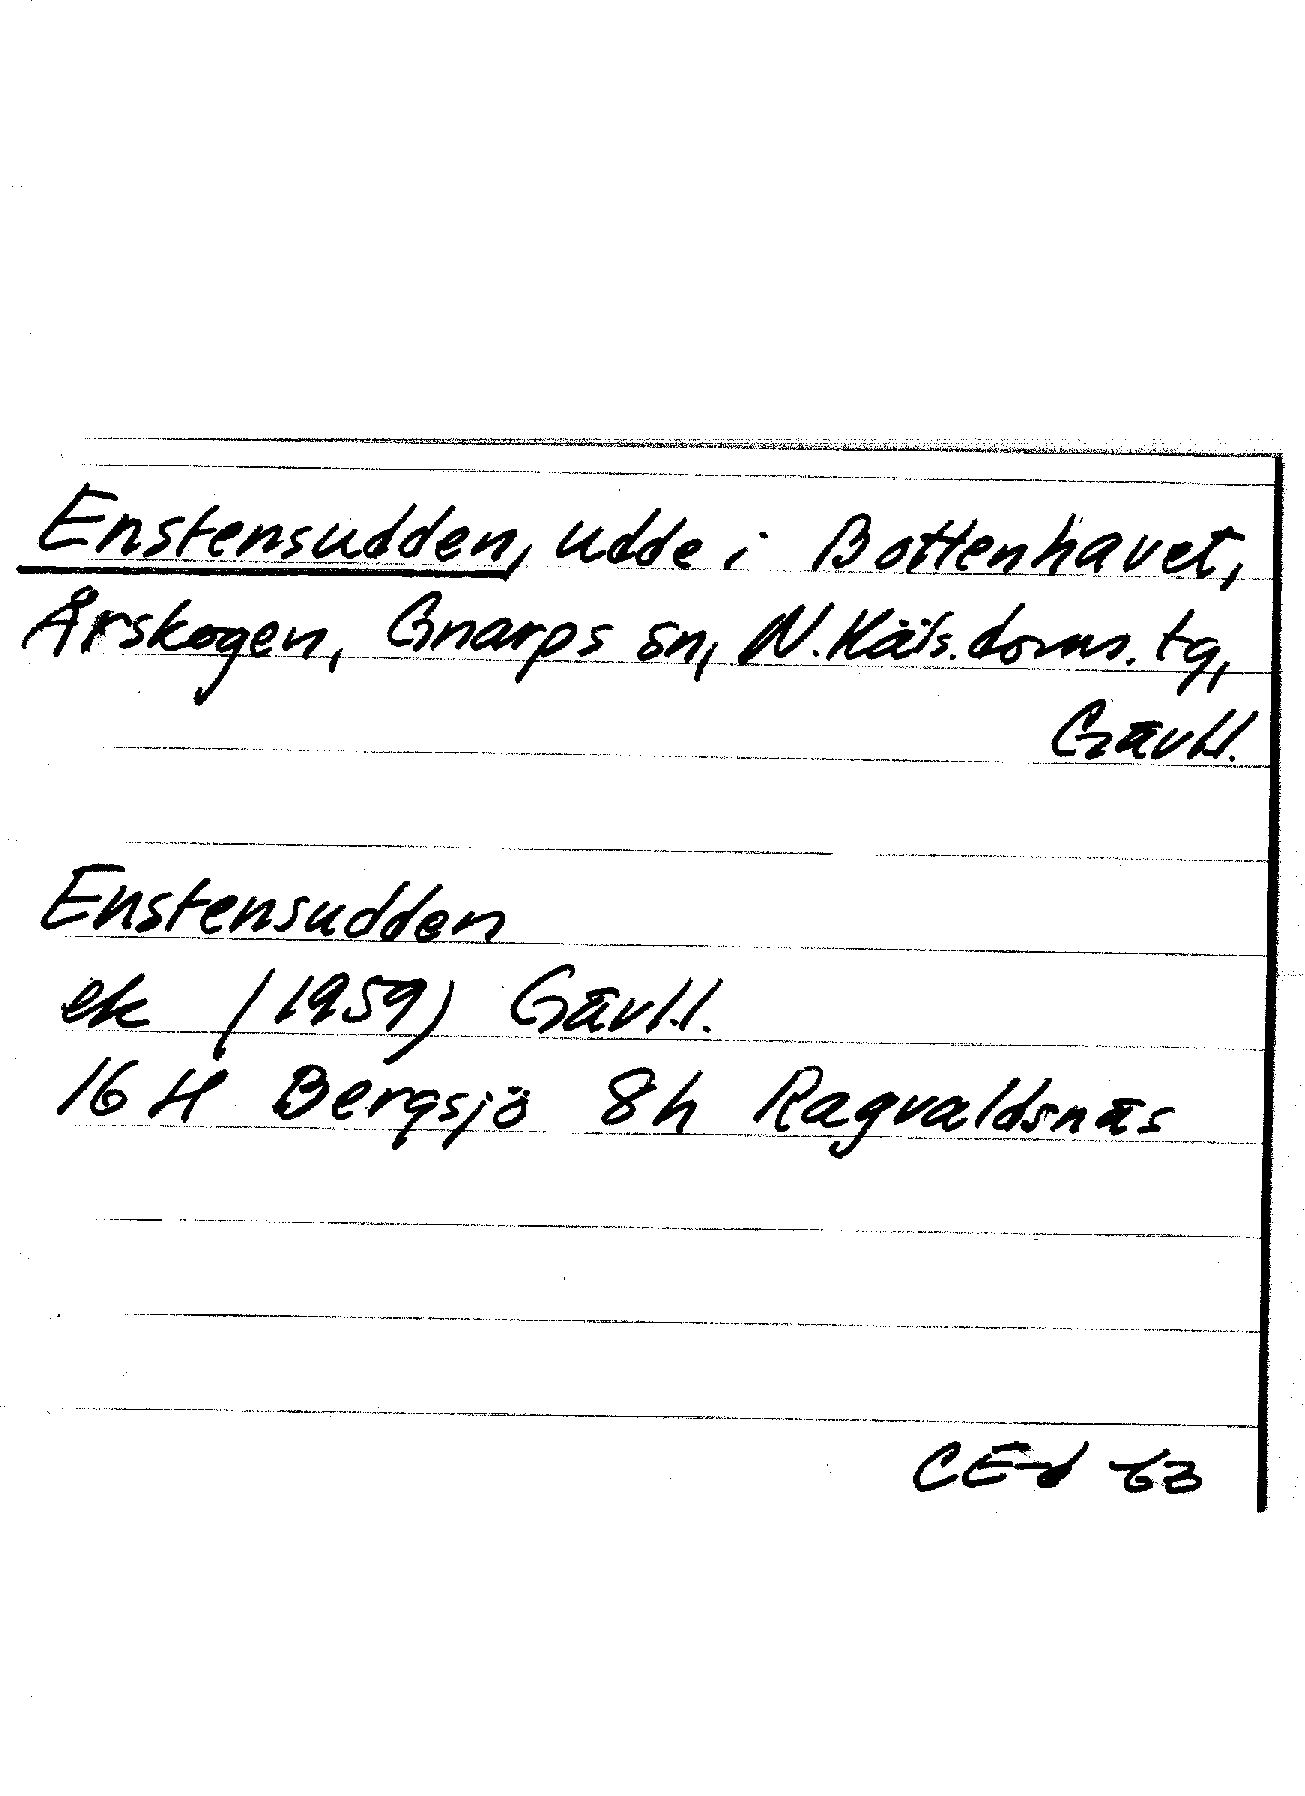 Enstensudden, udde i Bottenhavet,
Årskogen, Gnarps sn, N. Häls. doms. tg,
Gävl.l.
Enstensudden
ek (1959) Gävl.l.
16 H Bergsjö 8h Ragvaldsnäs
CE-d 63